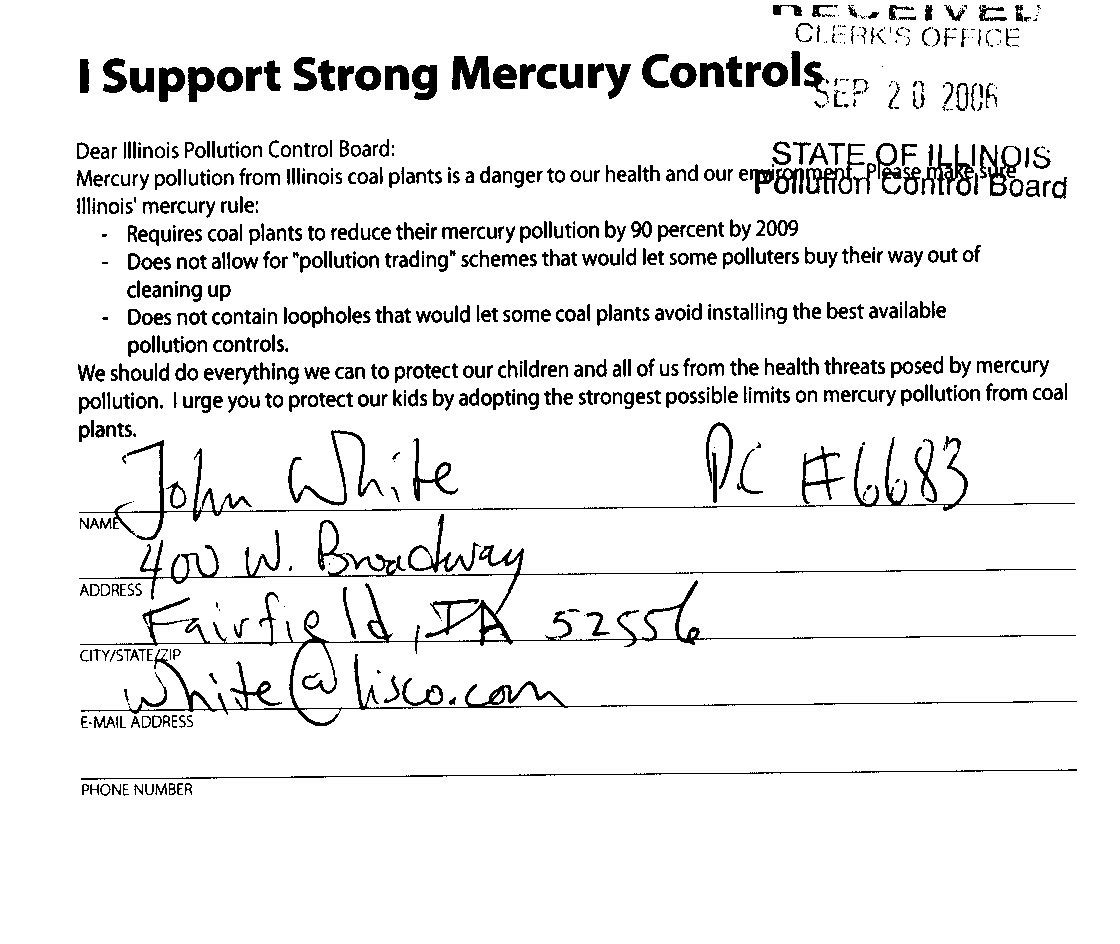 RECEIVED
CLERK'S OFFICE
I Support Strong Mercury Controls
SEP 20 2006
STATE OF ILLINOIS
Pollution Control Board
Dear Illinois Pollution Control Board:
Mercury pollution from Illinois coal plants is a danger to our health and our environment. Please make sure
Illinois' mercury rule:
- Requires coal plants to reduce their mercury pollution by 90 percent by 2009
- Does not allow for "pollution trading" schemes that would let some polluters buy their way out of
cleaning up
- Does not contain loopholes that would let some coal plants avoid installing the best available
pollution controls.
We should do everything we can to protect our children and all of us from the health threats posed by mercury
pollution. I urge you to protect our kids by adopting the strongest possible limits on mercury pollution from coal
plants.
John White PC #6683
NAME
400 W. Broadway
ADDRESS
Fairfield, IA 52556
CITY/STATE/ZIP
white@lisco.com
E-MAIL ADDRESS
PHONE NUMBER